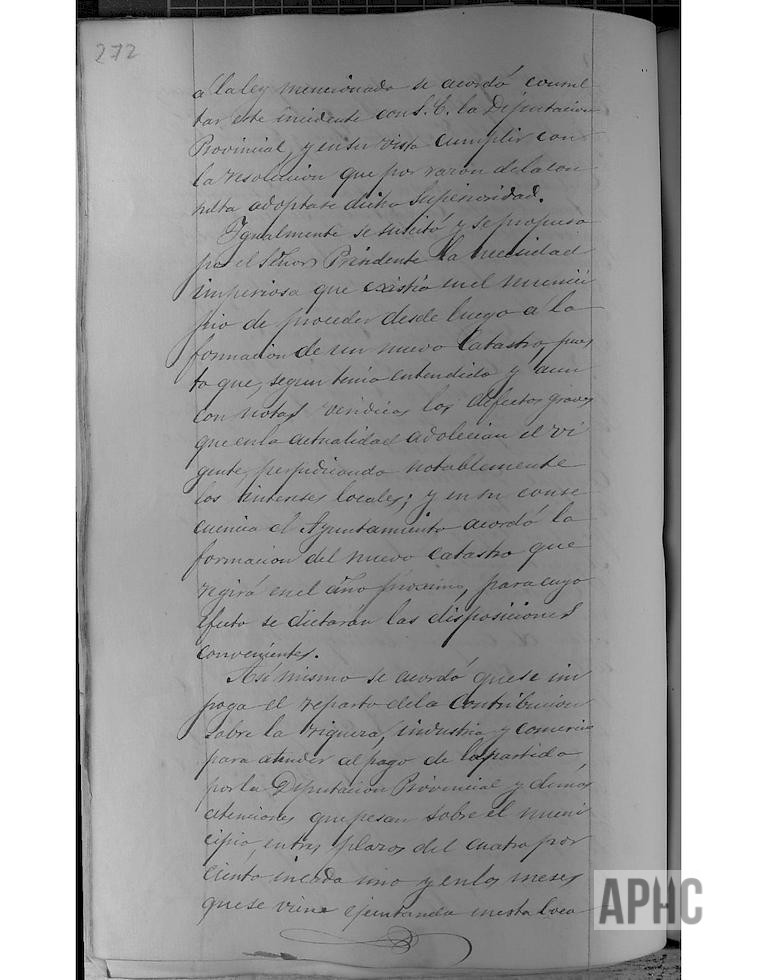 272
á la ley mencionada se acordó consul
tar este incidente con S. E. la Diputacion
Provincial, y en su vista cumplir con
la resolucion que por razon de la con
sulta adoptare dicha Superioridad.
Igualmente se suscitó y se propuso
por el Señor Presidente la necesidad
imperiosa que existia en el munici
pio de proceder desde luego á la
formacion de un nuevo Catastro, pues
to que, segun tenia entendido y aun
con notas los defectos graves
que en la actualidad adolecian el vi
gente, perjudicando notablemente
los intereses locales; y en su conse
cuencia el Ayuntamiento acordó la
formacion del nuevo catastro que
regirá en el año proximo, para cuyo
efecto se dictarán las disposiciones
convenientes.
Asi mismo se acordó que se im
poga el reparto de la Contribucion
sobre la riqueza, industria y comercio
para atender al pago de la partida
por la Diputacion Provincial y demas
atenciones que pesan sobre el muni
cipio, en tres plazos del cuatro por
ciento en cada uno y en los meses
que se viene ejecutando en esta loca
APHC